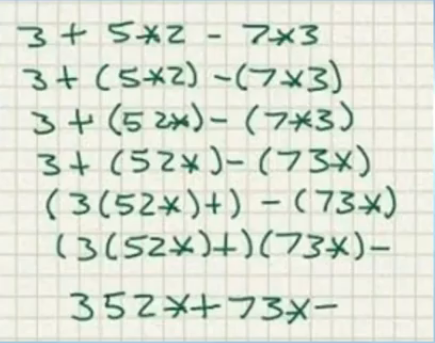 3 + 5*2 - 7*3
3 + (5*2) - (7*3)
3 + (52*) - (7*3)
3 + (52*) - (73*)
(3(52*)+) - (73*)
(3(52*)+)(73*)-
352*+73*-